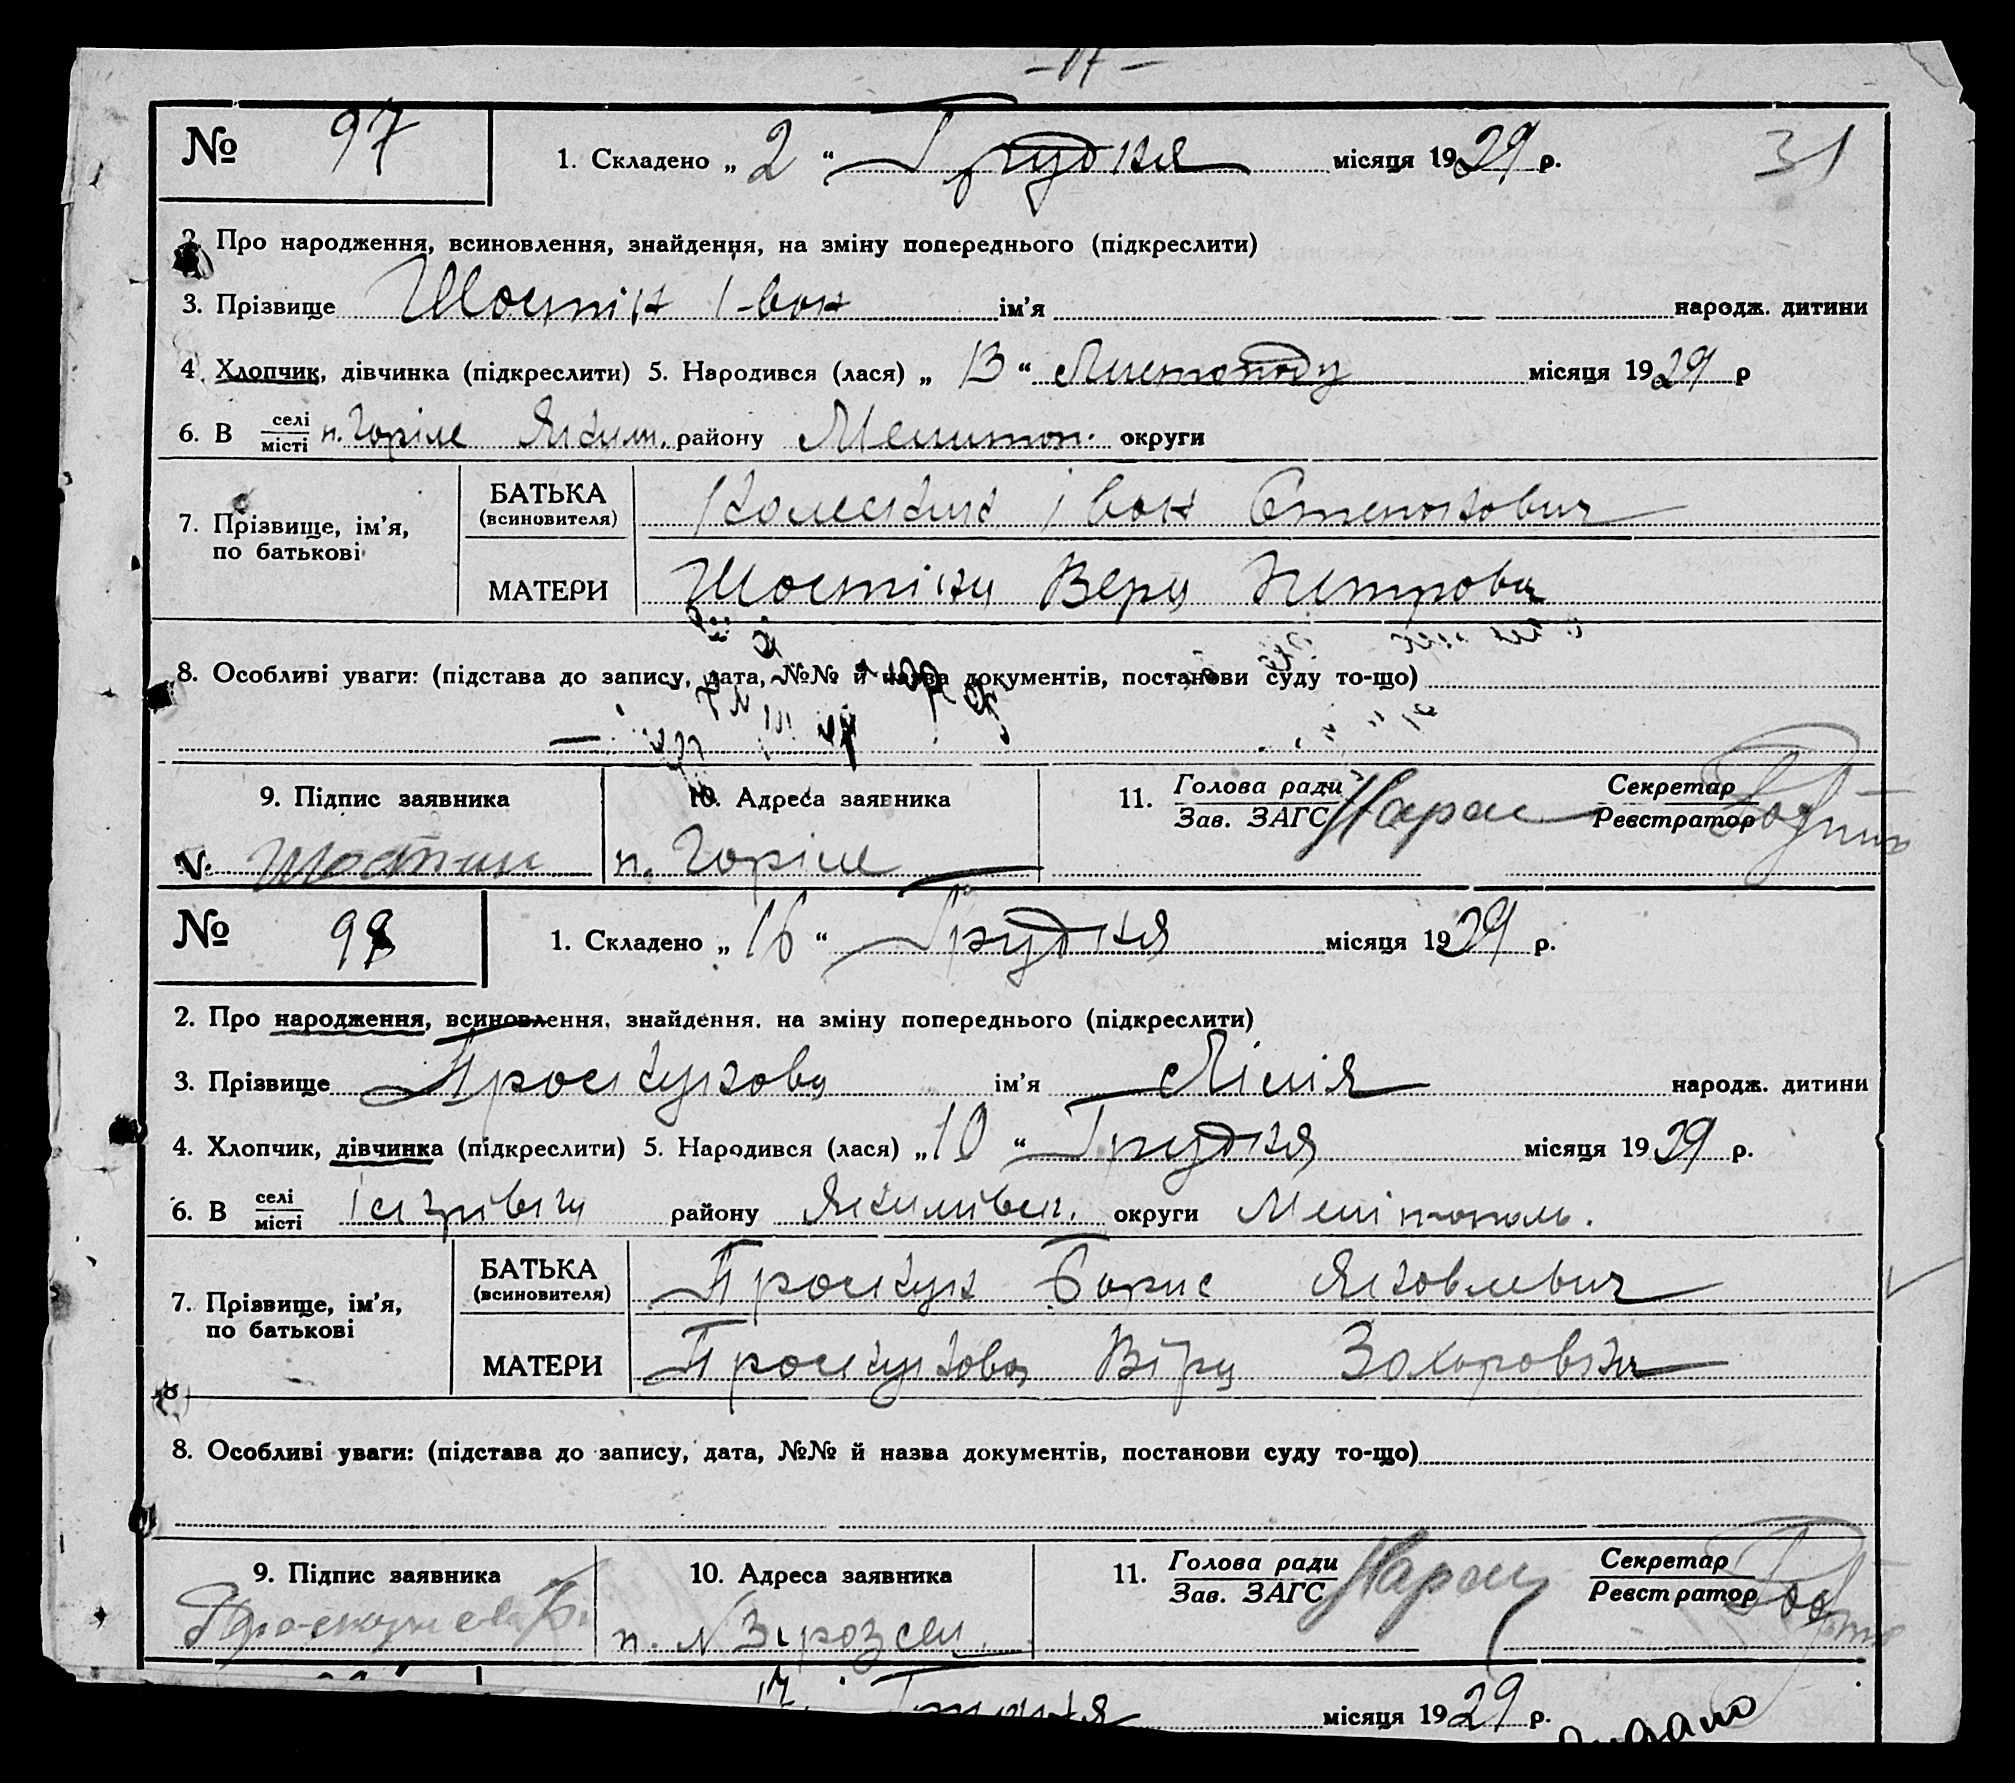 – 17 –
№ 97 1. Складено „ 2 “ Грудня місяця 1929 р. 31
2. Про народження, всиновлення, знайдення, на зміну попереднього (підкреслити)
3. Прізвище Шостік Іван ім'я народж. дитини
4. Хлопчик, дівчинка (підкреслити) 5. Народився (лася) „ 13 “ Листопаду місяця 1929 р
6. В селі/місті п. Горіле Яким. району Мелитоп. округи
7. Прізвище, ім'я, по батькові
БАТЬКА (всиновителя) Колесник Іван Степанович
МАТЕРИ Шостіка Вера Петрова
8. Особливі уваги: (підстава до запису, дата, №№ й назва документів, постанови суду то-що)
9. Підпис заявника 10. Адреса заявника 11. Голова ради/Зав. ЗАГС Секретар/Реєстратор
п. Горіле
№ 98 1. Складено „ 16 “ Грудня місяця 1929 р.
2. Про народження, всиновлення, знайдення, на зміну попереднього (підкреслити)
3. Прізвище Проскунова ім'я Лілія народж. дитини
4. Хлопчик, дівчинка (підкреслити) 5. Народився (лася) „ 10 “ Грудня місяця 1929 р.
6. В селі/місті району Якимівск. округи Мелітополь.
7. Прізвище, ім'я, по батькові
БАТЬКА (всиновителя) Проскун Борис Яковлевич
МАТЕРИ Проскунова Віра Захаровна
8. Особливі уваги: (підстава до запису, дата, №№ й назва документів, постанови суду то-що)
9. Підпис заявника 10. Адреса заявника 11. Голова ради/Зав. ЗАГС Секретар/Реєстратор
17 Грудня місяця 1929 р.